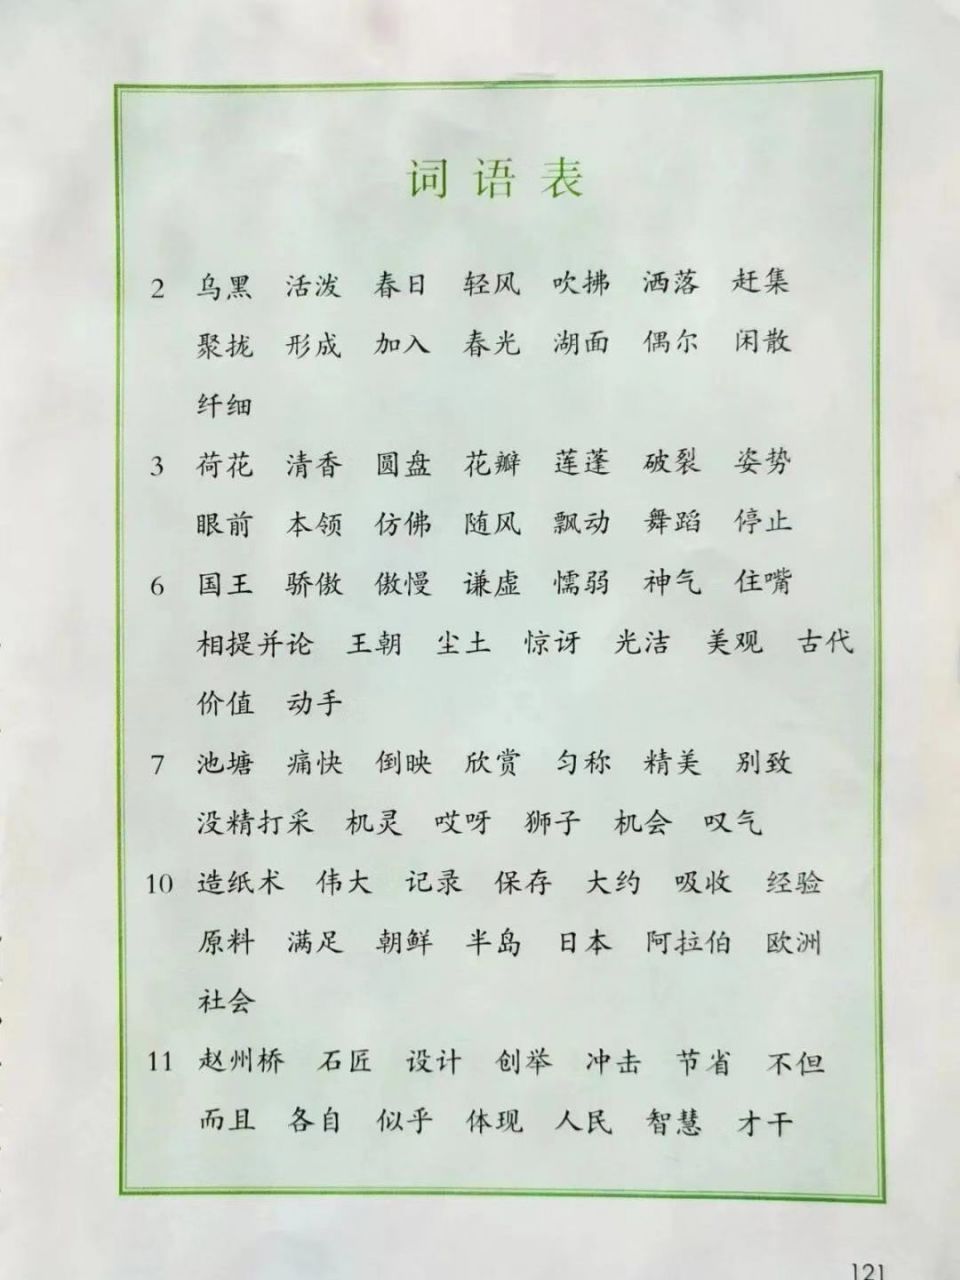 词语表
2 乌黑 活泼 春日 轻风 吹拂 洒落 赶集
聚拢 形成 加入 春光 湖面 偶尔 闲散
纤细
3 荷花 清香 圆盘 花瓣 莲蓬 破裂 姿势
眼前 本领 仿佛 随风 飘动 舞蹈 停止
6 国王 骄傲 傲慢 谦虚 懦弱 神气 住嘴
相提并论 王朝 尘土 惊讶 光洁 美观 古代
价值 动手
7 池塘 痛快 倒映 欣赏 匀称 精美 别致
没精打采 机灵 哎呀 狮子 机会 叹气
10 造纸术 伟大 记录 保存 大约 吸收 经验
原料 满足 朝鲜 半岛 日本 阿拉伯 欧洲
社会
11 赵州桥 石匠 设计 创举 冲击 节省 不但
而且 各自 似乎 体现 人民 智慧 才干
121